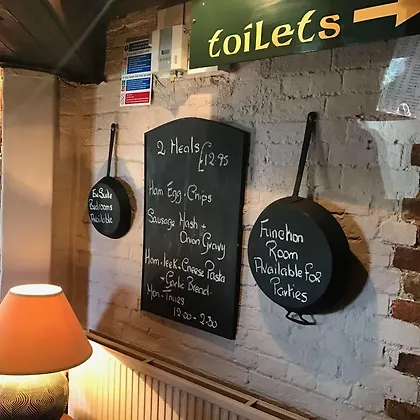 toilets
En-Suite
Bedrooms
Available
2 Meals £12.95
Ham Egg + Chips
Sausage Mash +
Onion Gravy
Ham, leek + Cheese Pasta
+ Garlic Bread
Mon - Thurs
12.00 - 2.30
Function
Room
Available for
Parties